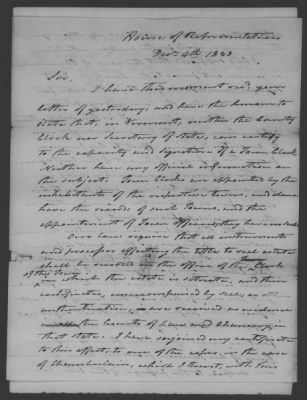 House of Representatives
Dec. 4th 1823
Sir,
I have this moment recd. your
letter of yesterday; and have the honour to
state that, in Vermont, neither the County
Clerk nor Secretary of State, can certify
to the capacity and signature of a Town Clerk
Neither have any official information on
the subject. Town Clerks are appointed by the
inhabitants of the respective towns, and
have the records of such towns, and the
appointment of Town officers,
Our laws require that all instruments
and processes affecting the title to real estate
shall be recorded in the office of the Town Clerk
of the Town in which the estate is situate, and their
certificates, unaccompanied by seal, or
authentication, are received as evidence
in the Courts of Law and Chancery, in
that state. I have my certificate
to this effect, to one of the in the case
of Chamberlain, which I trust, with this